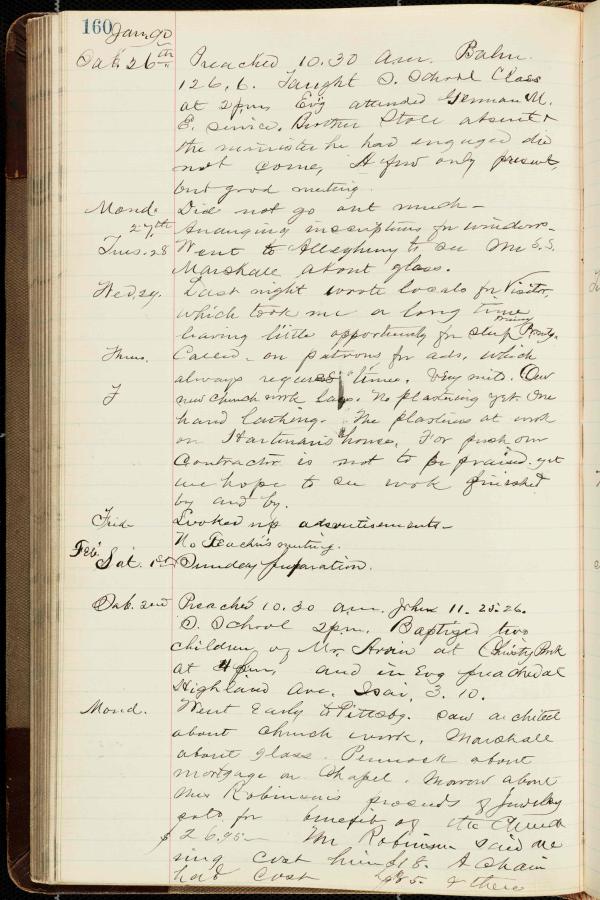 160 Jan. 90
Sab. 26th Preached 10.30 a.m. Psalm
126, 6. Taught S. School Class
at 2 p.m. Evg attended German M.
E. service. Brother Stoll absent &
the minister he had engaged did
not come, A few only present,
but good meeting.
Mond. Did not go out much—
27th Arranging inscriptions for windows—
Tues. 28 Went to Allegheny to see Mr S.S.
Marshall about glass.
Wed. 29. Last night wrote locals for Visitor,
which took me a long time
leaving little opportunity for sleep
Thurs. Called on patrons for ads. which
always requires time. Very mild. Our
F new church work lags. No plastering yet. One
hand lathing. The plasterers at work
on Hartman's house. For push our
Contractor is not to be praised. yet
we hope to see work finished
by and by.
Frid. Looked up advertisements—
No Teacher's meeting.
Feb. Sat. 1st Sunday preparation.
Sab. 2nd Preach'd 10.30 a.m. John 11. 25.26.
S. School 2 p.m. Baptized two
children of Mr. Irwin at Park
at 4 p.m., and in Evg preached at
Highland Ave. Isai. 3. 10.
Mond. Went Early to Pittsbg. Saw architect
about church work. Marshall
about glass. Pennock about
mortgage on Chapel. Morrow about
Mrs Robinson's proceeds of Jewelry
sold for benefit of the Church
$26.95— Mr Robinson said the
ring cost him $18. A Chain
had cost $85. & there